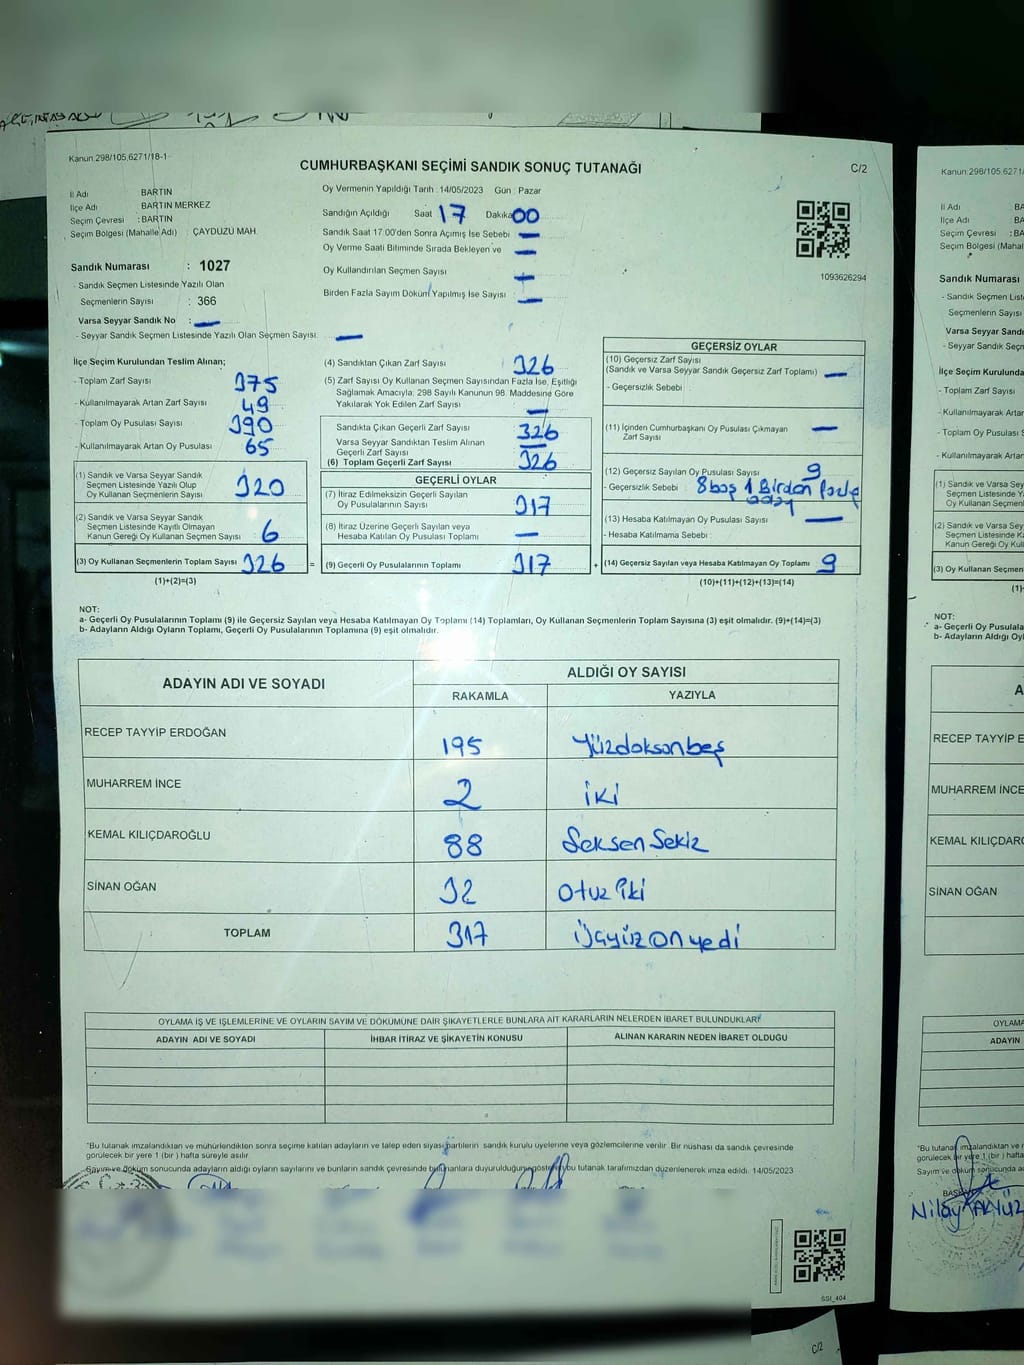 Kanun:298/105,6271/18-1
CUMHURBAŞKANI SEÇİMİ SANDIK SONUÇ TUTANAĞI
C/2
İl Adı BARTIN
İlçe Adı BARTIN MERKEZ
Seçim Çevresi : BARTIN
Seçim Bölgesi (Mahalle Adı) : ÇAYDÜZÜ MAH.
Sandık Numarası : 1027
- Sandık Seçmen Listesinde Yazılı Olan
Seçmenlerin Sayısı : 366
Varsa Seyyar Sandık No : —
- Seyyar Sandık Seçmen Listesinde Yazılı Olan Seçmen Sayısı: —
Oy Vermenin Yapıldığı Tarih : 14/05/2023 Gün : Pazar
Sandığın Açıldığı Saat 17 Dakika 00
Sandık Saat 17.00'den Sonra Açımış İse Sebebi —
Oy Verme Saati Bitiminde Sırada Bekleyen ve —
Oy Kullandırılan Seçmen Sayısı —
Birden Fazla Sayım Döküm Yapılmış İse Sayısı —
1093626294
İlçe Seçim Kurulundan Teslim Alınan;
- Toplam Zarf Sayısı 375
- Kullanılmayarak Artan Zarf Sayısı 49
- Toplam Oy Pusulası Sayısı 390
- Kullanılmayarak Artan Oy Pusulası 65
(1) Sandık ve Varsa Seyyar Sandık
Seçmen Listesinde Yazılı Olup
Oy Kullanan Seçmenlerin Sayısı 320
(2) Sandık ve Varsa Seyyar Sandık
Seçmen Listesinde Kayıtlı Olmayan
Kanun Gereği Oy Kullanan Seçmen Sayısı : 6
(3) Oy Kullanan Seçmenlerin Toplam Sayısı 326 =
(1)+(2)=(3)
(4) Sandıktan Çıkan Zarf Sayısı 326
(5) Zarf Sayısı Oy Kullanan Seçmen Sayısından Fazla İse, Eşitliği
Sağlamak Amacıyla, 298 Sayılı Kanunun 98. Maddesine Göre
Yakılarak Yok Edilen Zarf Sayısı —
Sandıkta Çıkan Geçerli Zarf Sayısı 326
Varsa Seyyar Sandıktan Teslim Alınan
Geçerli Zarf Sayısı —
(6) Toplam Geçerli Zarf Sayısı 326
GEÇERLİ OYLAR
(7) İtiraz Edilmeksizin Geçerli Sayılan
Oy Pusulalarının Sayısı 317
(8) İtiraz Üzerine Geçerli Sayılan veya
Hesaba Katılan Oy Pusulası Toplamı —
(9) Geçerli Oy Pusulalarının Toplamı 317 +
GEÇERSİZ OYLAR
(10) Geçersiz Zarf Sayısı
(Sandık ve Varsa Seyyar Sandık Geçersiz Zarf Toplamı) —
- Geçersizlik Sebebi
(11) İçinden Cumhurbaşkanı Oy Pusulası Çıkmayan
Zarf Sayısı —
(12) Geçersiz Sayılan Oy Pusulası Sayısı 9
- Geçersizlik Sebebi : 8 boş 1 Birden fazla
(13) Hesaba Katılmayan Oy Pusulası Sayısı —
- Hesaba Katılmama Sebebi :
(14) Geçersiz Sayılan veya Hesaba Katılmayan Oy Toplamı 9
(10)+(11)+(12)+(13)=(14)
NOT:
a- Geçerli Oy Pusulalarının Toplamı (9) ile Geçersiz Sayılan veya Hesaba Katılmayan Oy Toplamı (14) Toplamları, Oy Kullanan Seçmenlerin Toplam Sayısına (3) eşit olmalıdır. (9)+(14)=(3)
b- Adayların Aldığı Oyların Toplamı, Geçerli Oy Pusulalarının Toplamına (9) eşit olmalıdır.
ADAYIN ADI VE SOYADI ALDIĞI OY SAYISI
RAKAMLA YAZIYLA
RECEP TAYYİP ERDOĞAN 195 Yüzdoksanbeş
MUHARREM İNCE 2 iki
KEMAL KILIÇDAROĞLU 88 SeksenSekiz
SİNAN OĞAN 32 otuz iki
TOPLAM 317 Üçyüz on yedi
OYLAMA İŞ VE İŞLEMLERİNE VE OYLARIN SAYIM VE DÖKÜMÜNE DAİR ŞİKAYETLERLE BUNLARA AİT KARARLARIN NELERDEN İBARET BULUNDUKLARI
ADAYIN ADI VE SOYADI İHBAR İTİRAZ VE ŞİKAYETİN KONUSU ALINAN KARARIN NEDEN İBARET OLDUĞU
"Bu tutanak imzalandıktan ve mühürlendikten sonra seçime katılan adayların ve talep eden siyasi partilerin sandık kurulu üyelerine veya gözlemcilerine verilir. Bir nüshası da sandık çevresinde
görülecek bir yere 1 (bir ) hafta süreyle asılır.
Sayım ve döküm sonucunda adayların aldığı oyların sayılarını ve bunların sandık çevresinde bulunanlara duyurulduğunu gösterir bu tutanak tarafımızdan düzenlenerek imza edildi. 14/05/2023
SSİ_404
Kanun:298/105,6271/
İl Adı BA
İlçe Adı BA
Seçim Çevresi : BA
Seçim Bölgesi (Mahal
Sandık Numarası
- Sandık Seçmen List
Seçmenlerin Sayısı
Varsa Seyyar Sandı
- Seyyar Sandık Seçm
İlçe Seçim Kurulund
- Toplam Zarf Sayısı
- Kullanılmayarak Arta
- Toplam Oy Pusulası S
- Kullanılmayarak Artan
(1) Sandık ve Varsa Sey
Seçmen Listesinde Ya
Oy Kullanan Seçmenl
(2) Sandık ve Varsa Se
Seçmen Listesinde Ka
Kanun Gereği Oy Kull
(3) Oy Kullanan Seçmen
(1)
NOT:
a- Geçerli Oy Pusulala
b- Adayların Aldığı Oyl
A
RECEP TAYYİP E
MUHARREM İNCE
KEMAL KILIÇDARO
SİNAN OĞAN
OYLAMA
ADAYIN
"Bu tutanak imzalandıktan ve m
görülecek bir yere 1 (bir ) hafta
Sayım ve döküm sonucunda a
BAŞKAN
Nilay AKYÜZ
C/2